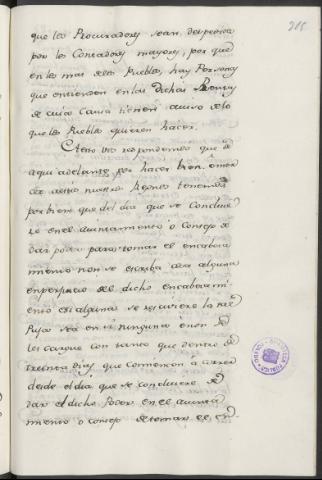 215
que los Procuradores sean despedidos
por los Contadores mayores, por que
en los mas delos Pueblos, hay Personas
que entienden en las dichas Rentas
de cuia Causa tienen auiso delo
que los Pueblos quieren hacer.
respondemos que de
aqui adelante por hacer bien, merced
nuestros Reynos tenemos
por bien que del dia que se Concluie
re en el ayuntamiento o Consejo de
dar poder para tomar el encabeza
miento non se escriba cosa alguna
en perjuicio del dicho encabezami
ento esi alguna se rejciuiere la tal
Puja sea en si ninguna e non se
les cargue con tanto que dentro de
treinta dias que comienzen a correr
desde el dia que se concluiere de
dar el dicho Poder en el ayunta
miento o consejo de tomar el en